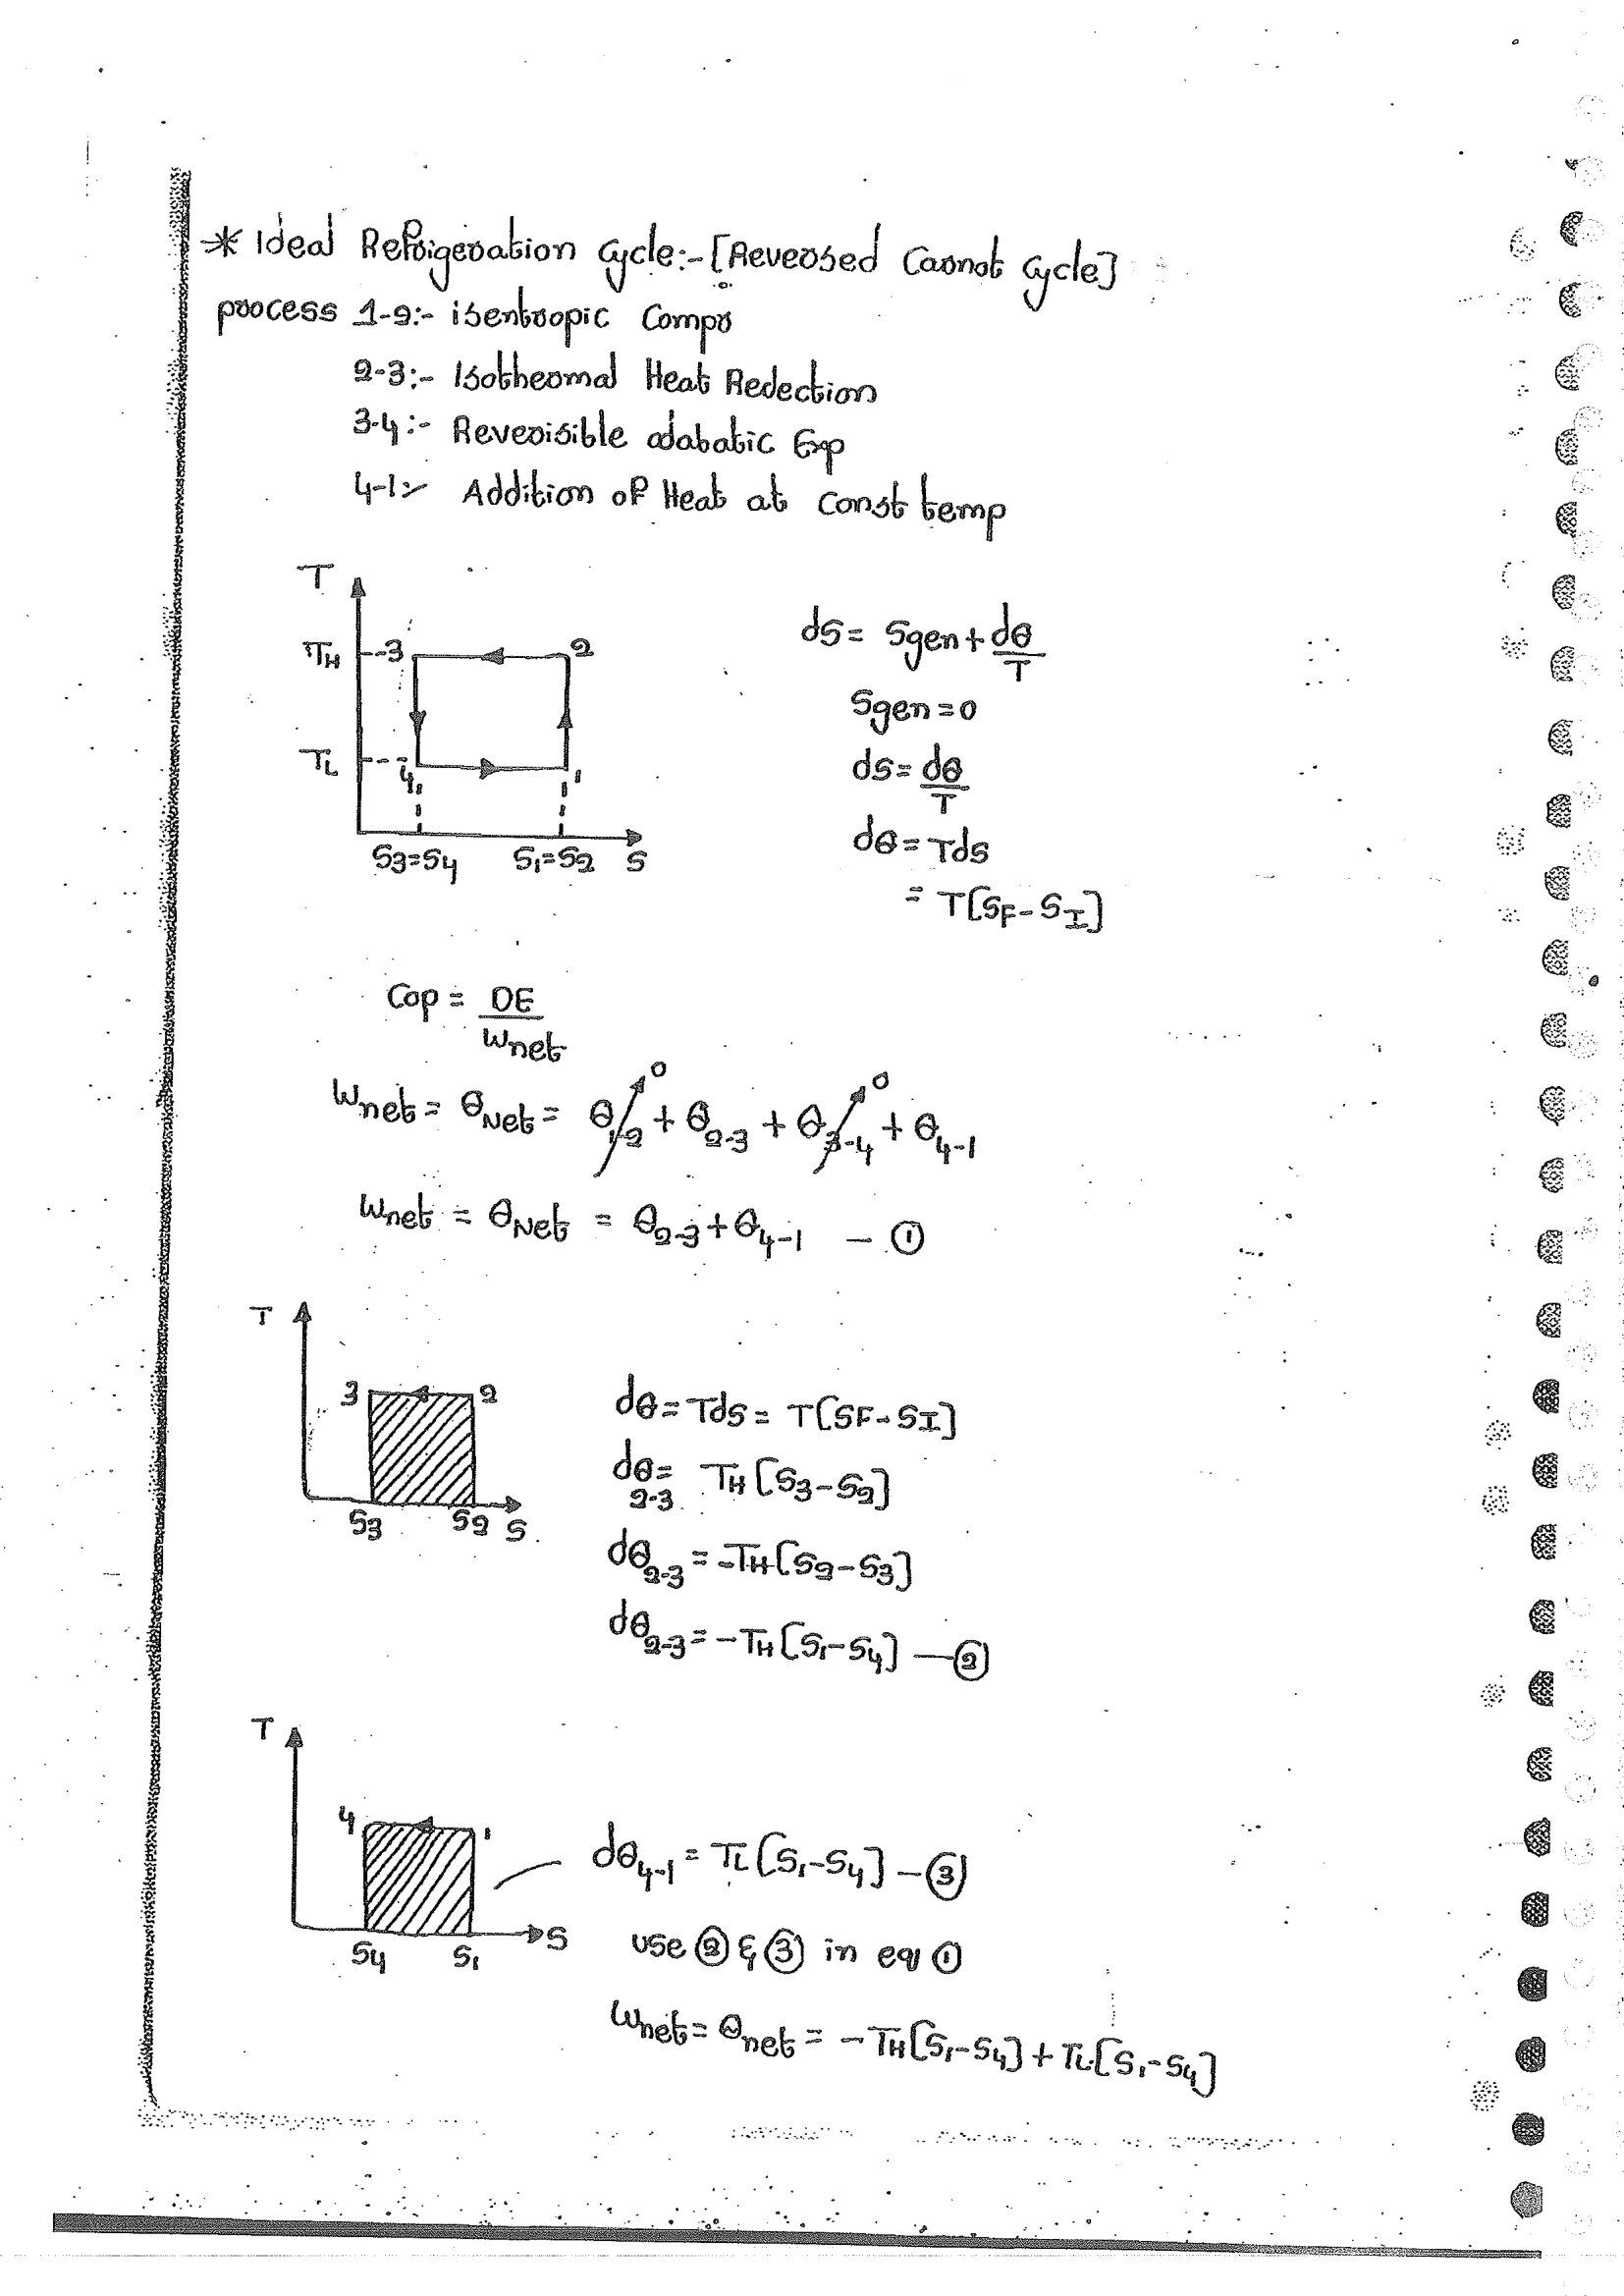 * Ideal Refrigeration Cycle:- [Reversed Carnot Cycle]
process 1-2:- isentropic Compr
2-3:- Isothermal Heat Redection
3-4:- Reverisible adabatic Exp
4-1:- Addition of Heat at Const temp
T
TH 3 2
TL 4 1
S3=S4 S1=S2 S
dS = Sgen + dθ/T
Sgen = 0
dS = dθ/T
dθ = Tds
= T[SF - SI]
Cop = DE/Wnet
Wnet = θNet = θ1-2 0 + θ2-3 + θ3-4 0 + θ4-1
Wnet = θNet = θ2-3 + θ4-1 - ①
T
3 2
S3 S2 S
dθ = Tds = T[SF - SI]
dθ2-3 = TH[S3-S2]
dθ2-3 = -TH[S2-S3]
dθ2-3 = -TH[S1-S4] - ②
T
4 1
S4 S1 S
dθ4-1 = TL[S1-S4] - ③
use ② & ③ in eq ①
Wnet = θnet = -TH[S1-S4] + TL[S1-S4]